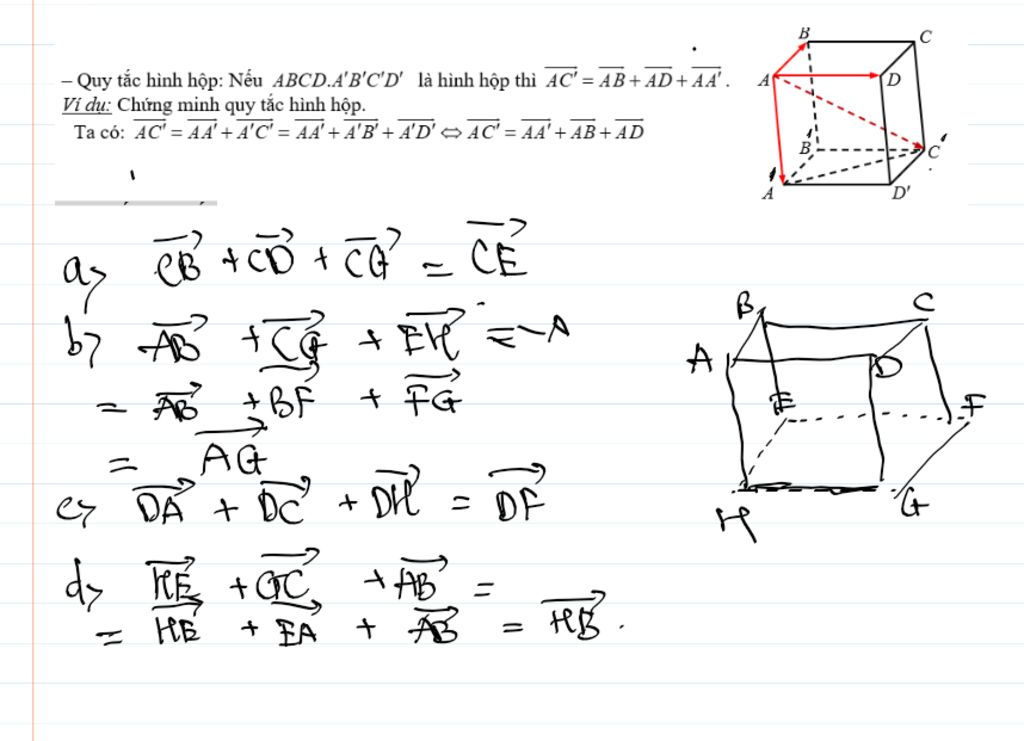 – Quy tắc hình hộp: Nếu ABCD.A'B'C'D' là hình hộp thì AC' = AB + AD + AA'.
Ví dụ: Chứng minh quy tắc hình hộp.
Ta có: AC' = AA' + A'C' = AA' + A'B' + A'D' ⇔ AC' = AA' + AB + AD
B C
A D
B' C'
A' D'
a, CB + CD + CG = CE
b, AB + CG + EH = -A
= AB + BF + FG
= AG
c, DA + DC + DH = DF
d, HE + GC + AB =
= HE + EA + AB = HB.
B C
A D
E F
H G